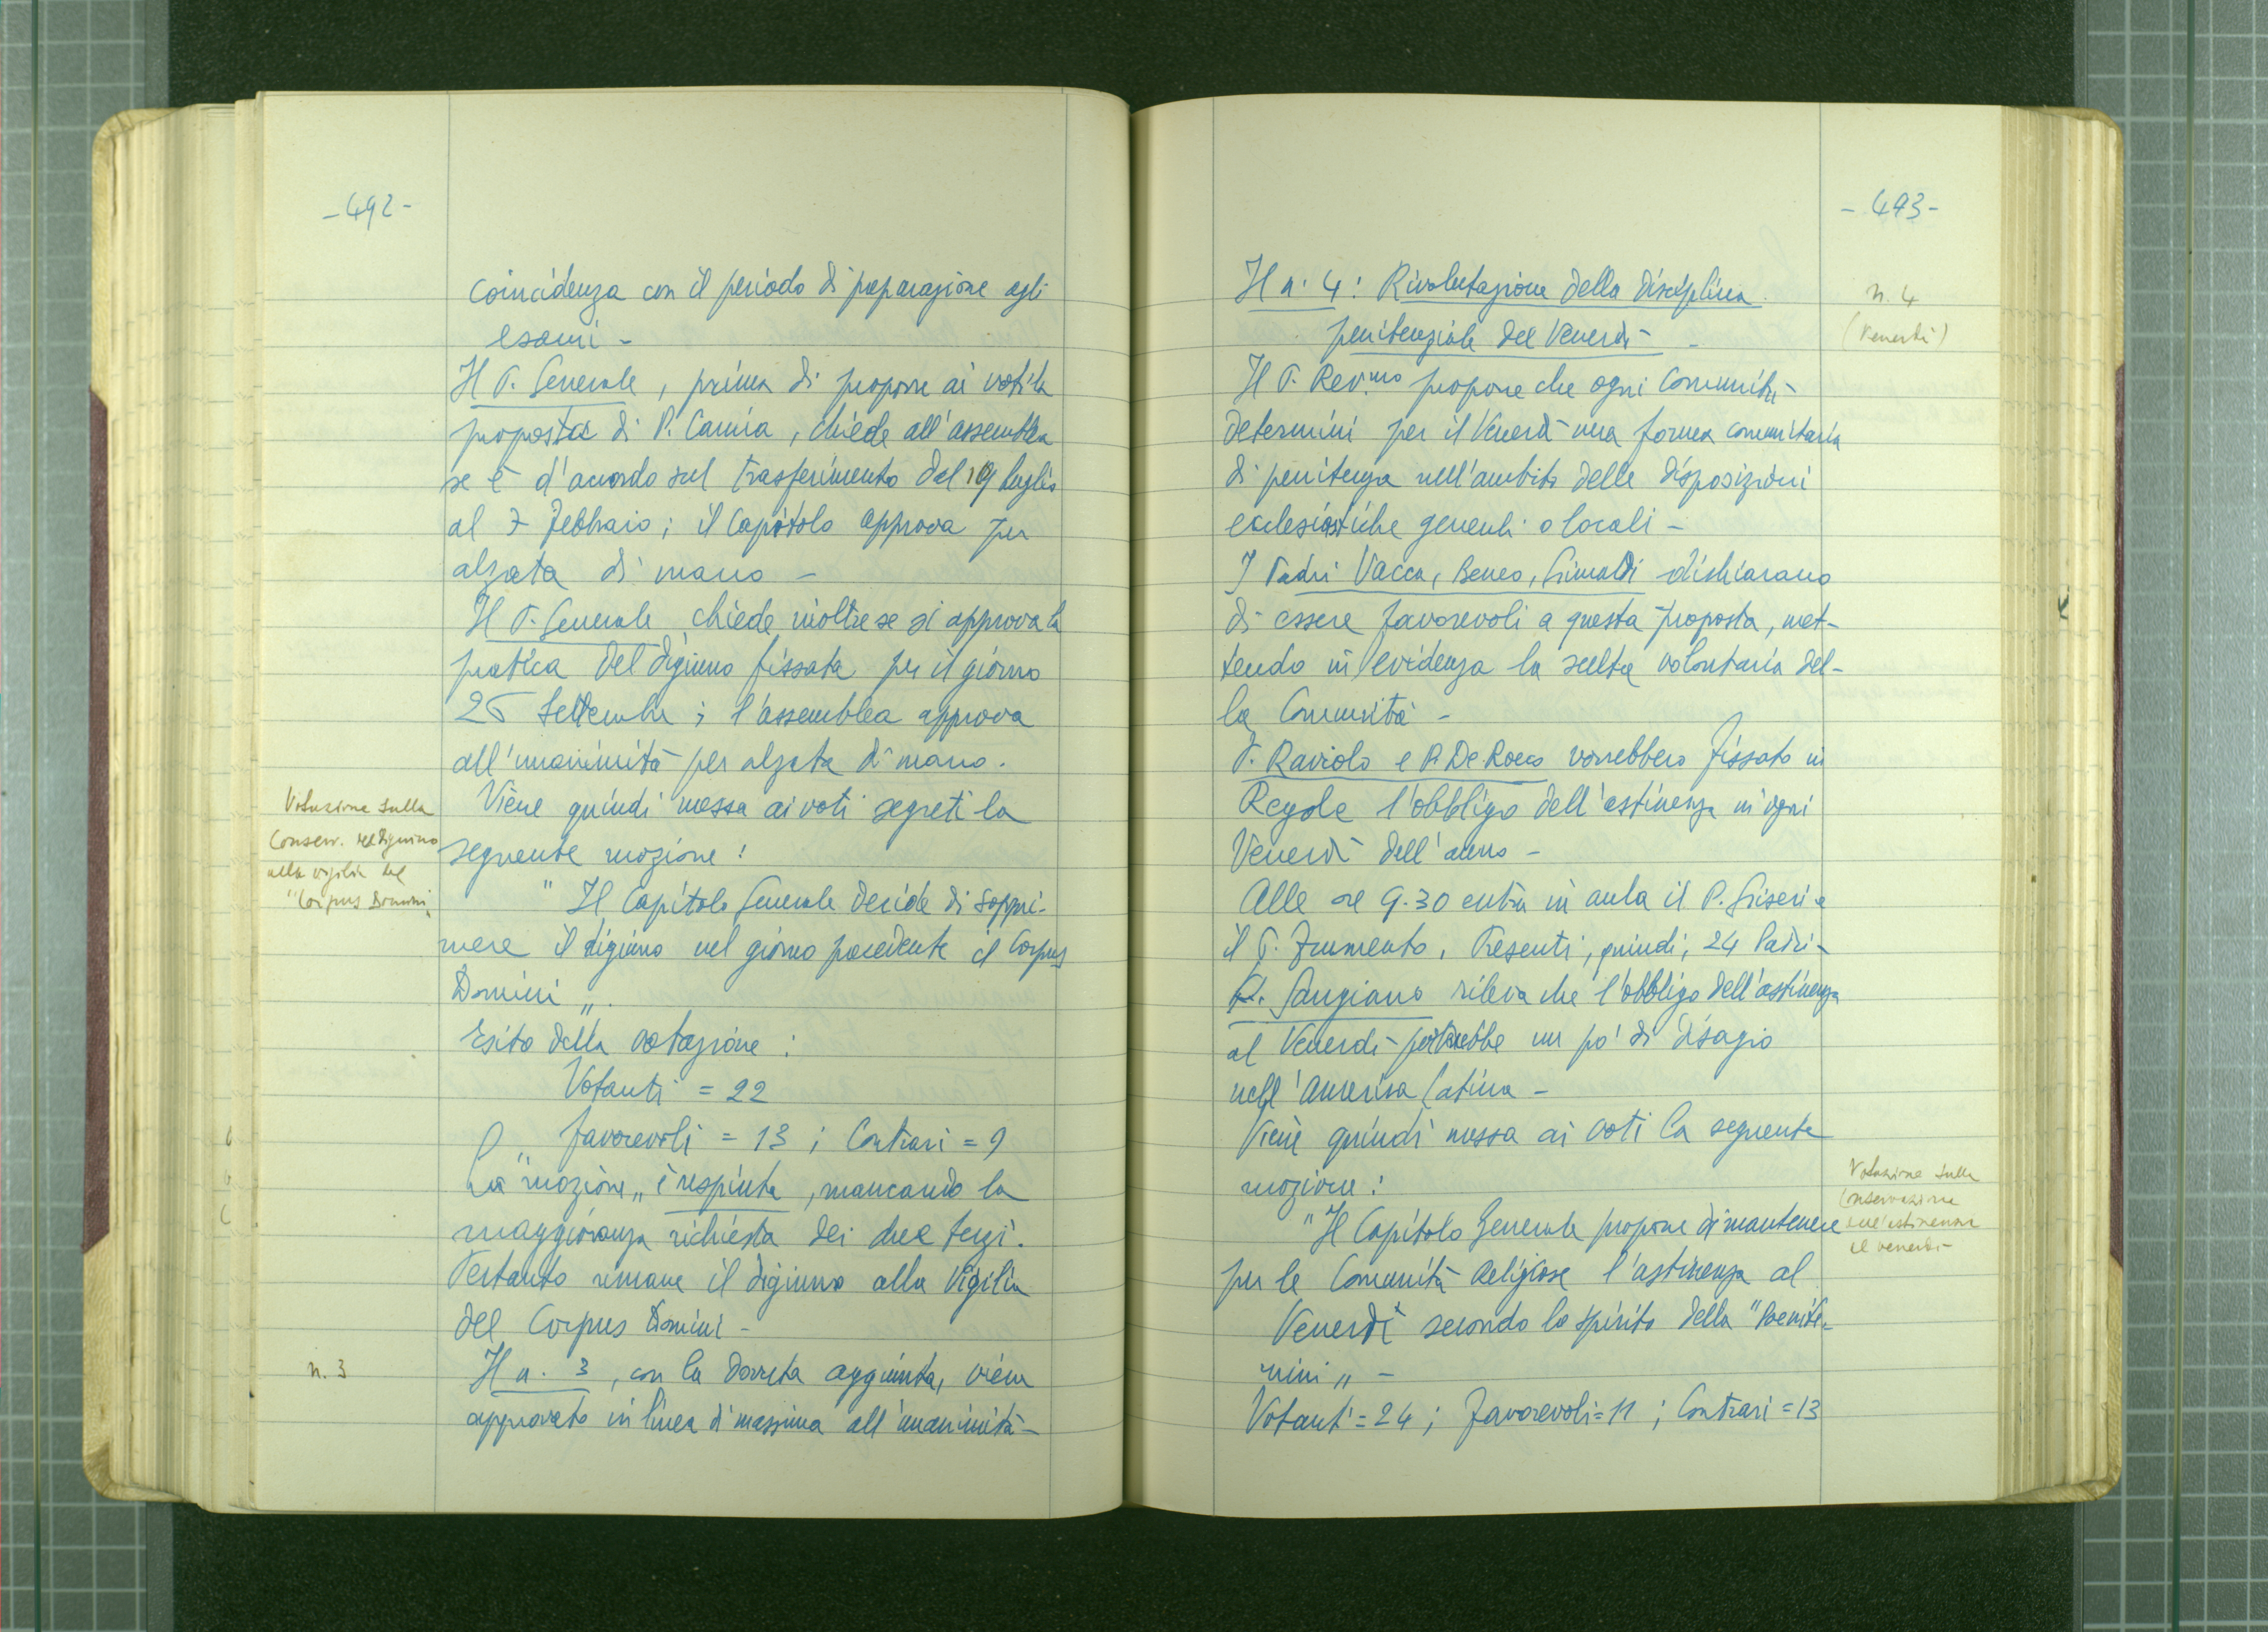 -492-
coincidenza con il periodo di preparazione agli
esami -
Il P. Generale, prima di proporre ai voti la
proposta di P. Camia, chiede all'assemblea
se è d'accordo sul trasferimento del 19 luglio
al 7 Febbraio; il Capitolo approva per
alzata di mano -
Il P. Generale chiede inoltre se si approva la
pratica del digiuno fissata per il giorno
26 Settembre; l'assemblea approva
all'unanimità per alzata di mano.
Viene quindi messa ai voti segreti la
seguente mozione:
" Il Capitolo Generale decide di soppri-
mere il digiuno nel giorno precedente il Corpus
Domini „.
Esito della votazione:
Votanti = 22
„ favorevoli = 13; Contrari = 9
La "mozione„ è respinta, mancando la
maggioranza richiesta dei due terzi.
Pertanto rimane il digiuno alla Vigilia
del Corpus Domini -
Il n. 3, con la dovuta aggiunta, viene
approvato in linea di massima all'unanimità -
Votazione sulla
Conserv. del digiuno
alla vigilia del
"Corpus Domini„
n. 3
-493-
Il n. 4: Rivalutazione della disciplina
penitenziale del Venerdì -
Il P. Rev.mo propone che ogni Comunità
determini per il Venerdì una forma comunitaria
di penitenza nell'ambito delle disposizioni
ecclesiastiche generali o locali -
I Padri Vacca, Beneo, Grimaldi dichiarano
di essere favorevoli a questa proposta, met-
tendo in evidenza la scelta volontaria del-
la Comunità -
P. Raviolo e P. De Rocco vorrebbero fissato in
Regole l'obbligo dell'astinenza in ogni
Venerdì dell'anno -
Alle ore 9.30 entra in aula il P. Griseri e
il P. Frumento. Presenti, quindi, 24 Padri -
P. Sangiano rileva che l'obbligo dell'astinenza
al Venerdì porterebbe un po' di disagio
nell'America Latina -
Viene quindi messa ai voti la seguente
mozione:
"Il Capitolo Generale propone di mantenere
per le Comunità Religiose l'astinenza al
Venerdì secondo lo spirito della "Paenite-
mini„ -
Votanti = 24; favorevoli = 11; Contrari = 13
n. 4
(Venerdì)
Votazione sulla
Conservazione
dell'astinenza
il venerdì